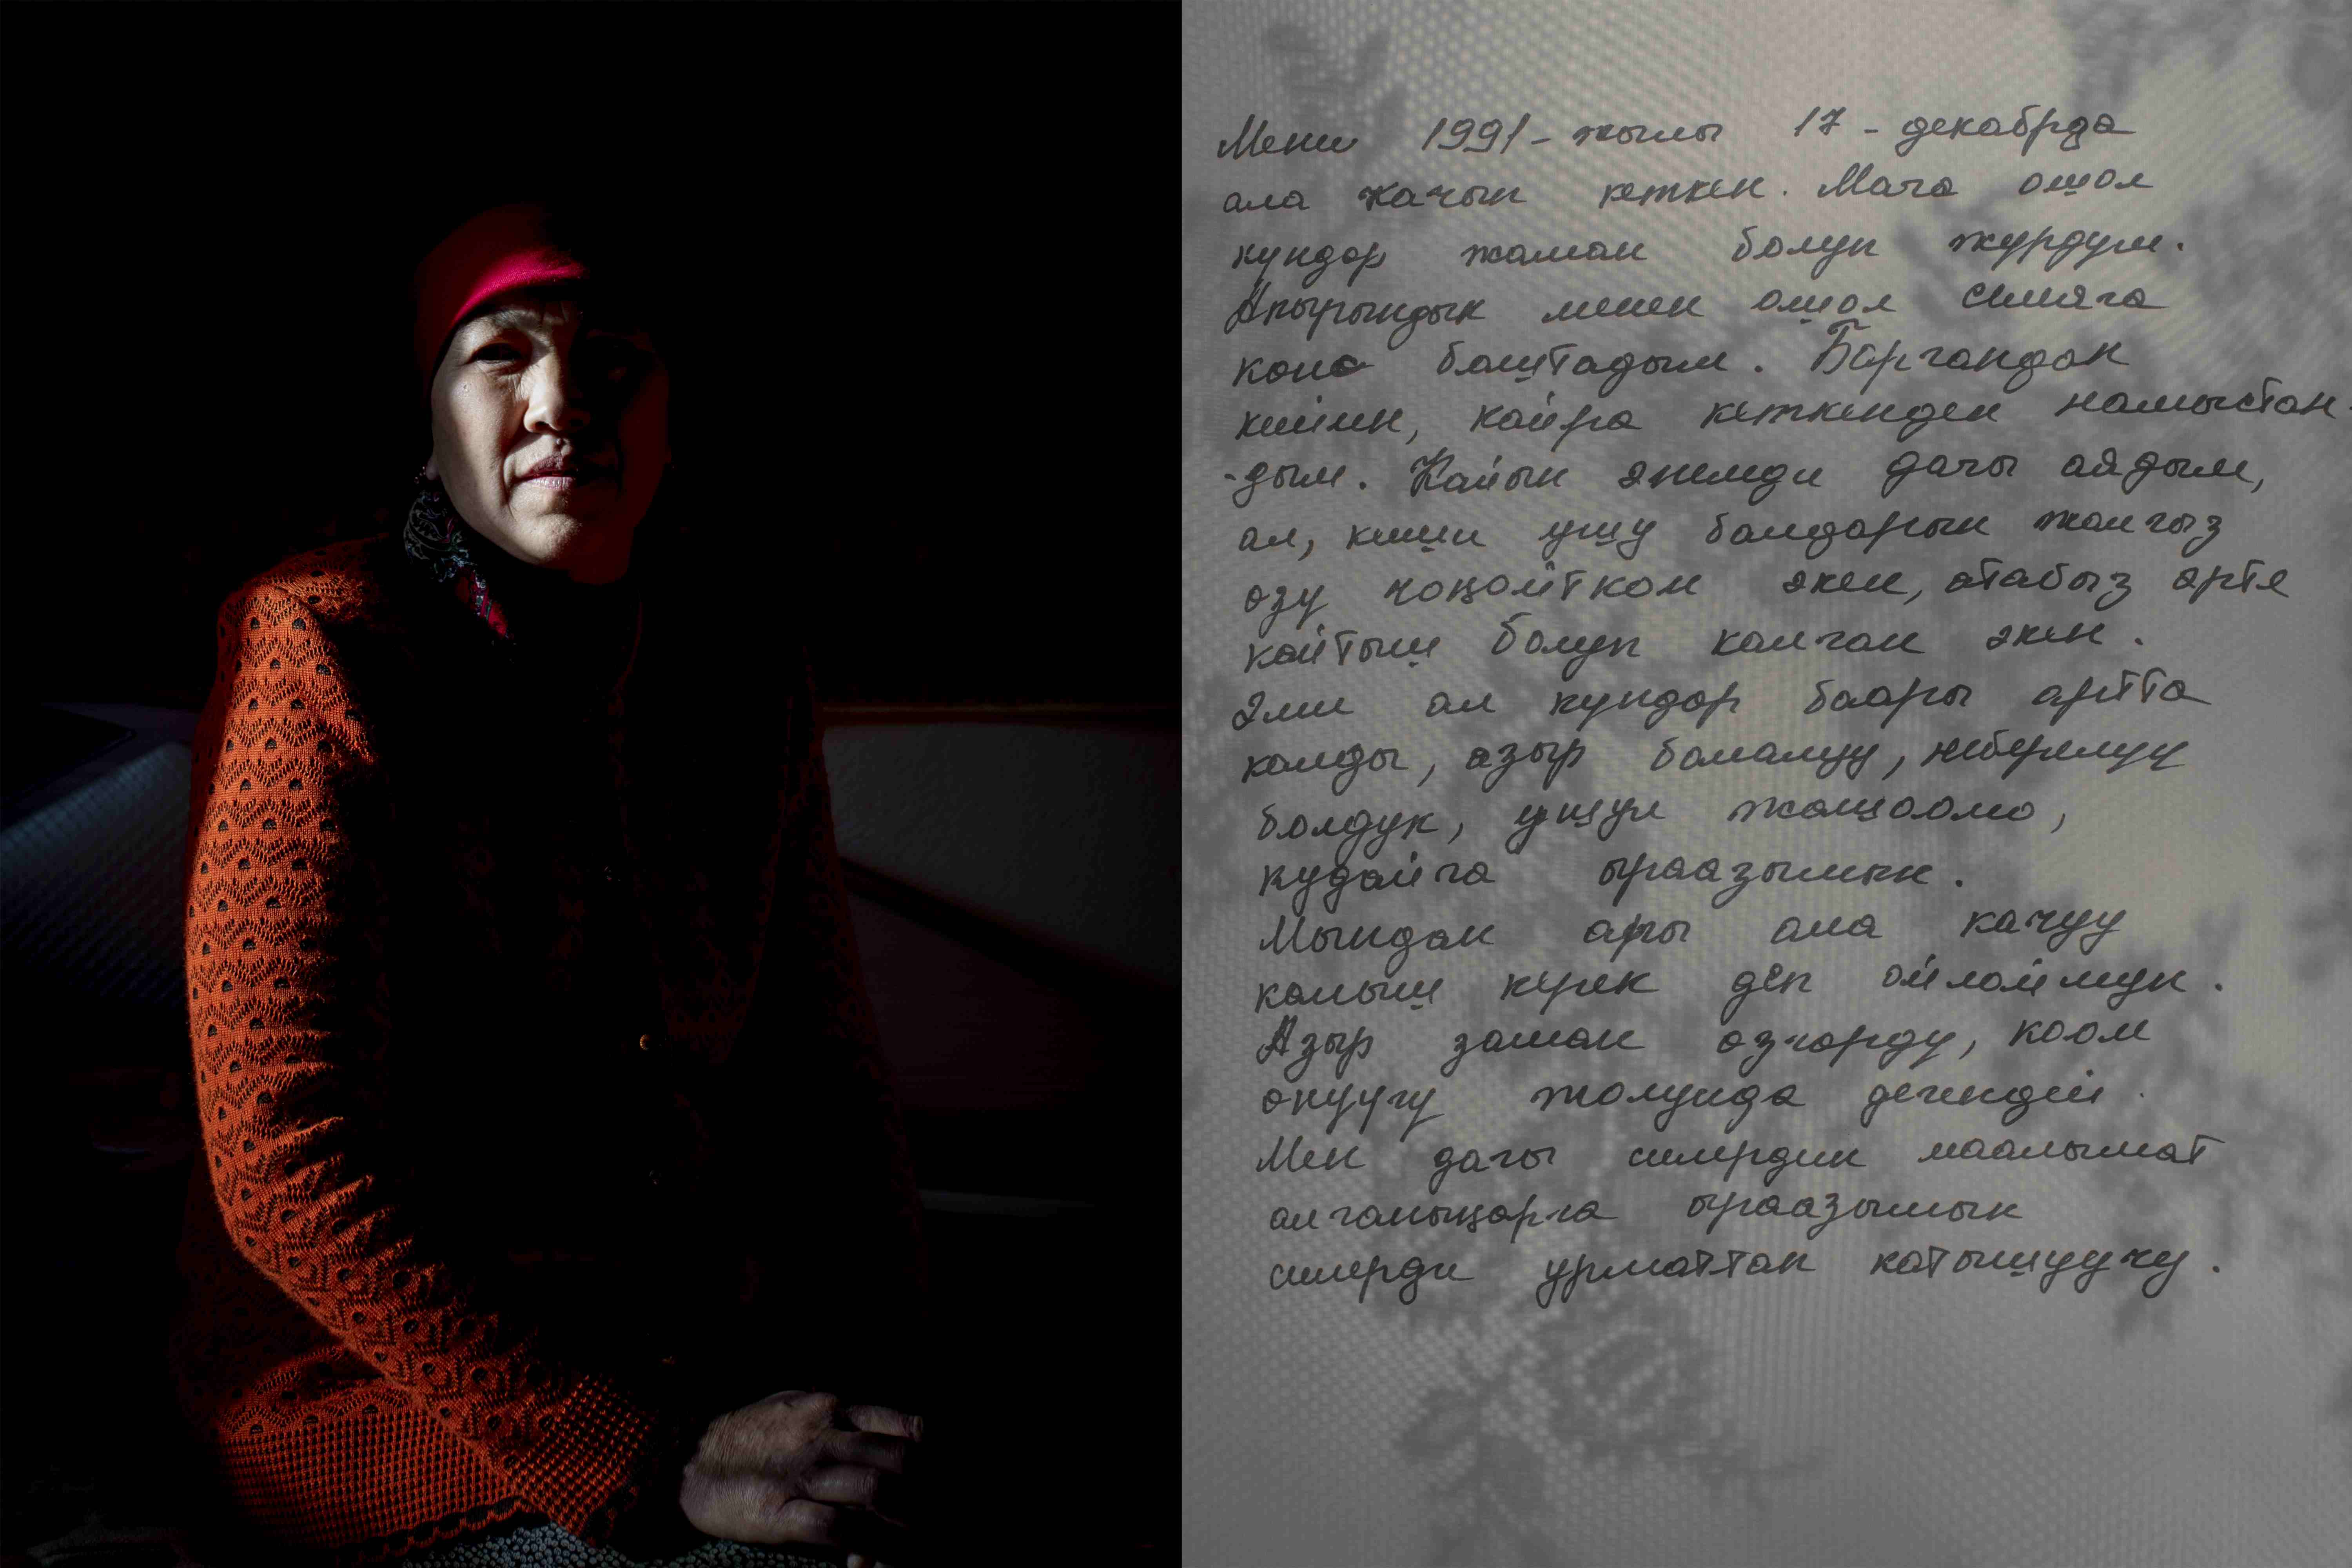 Мени 1991-жылы 17-декабрда
ала качып кеткен. Мага ошол
күндөр жаман болуп жүрдүм.
Акырындык менен ошол сияга
көнө баштадым. Баргандан
кийин, кайра кеткенден намыстан
-дым. Кайын энемди дагы аядым,
ал, киши ушу балдарын жалгыз
өзү чоңойткон экен, атабыз эрте
кайтыш болуп калган экен.
Эми ал күндөр баары артта
калды, азыр балалуу, неберелүү
болдук, ушул жашоомо,
кудайга ыраазымын.
Мындан ары ала качуу
калыш керек деп ойлоймун.
Азыр заман өзгөрдү, коом
өнүгүү жолунда дегендей.
Мен дагы силердин маалымат
алганыңарга ыраазымын
силерди урматтап катышуучу.